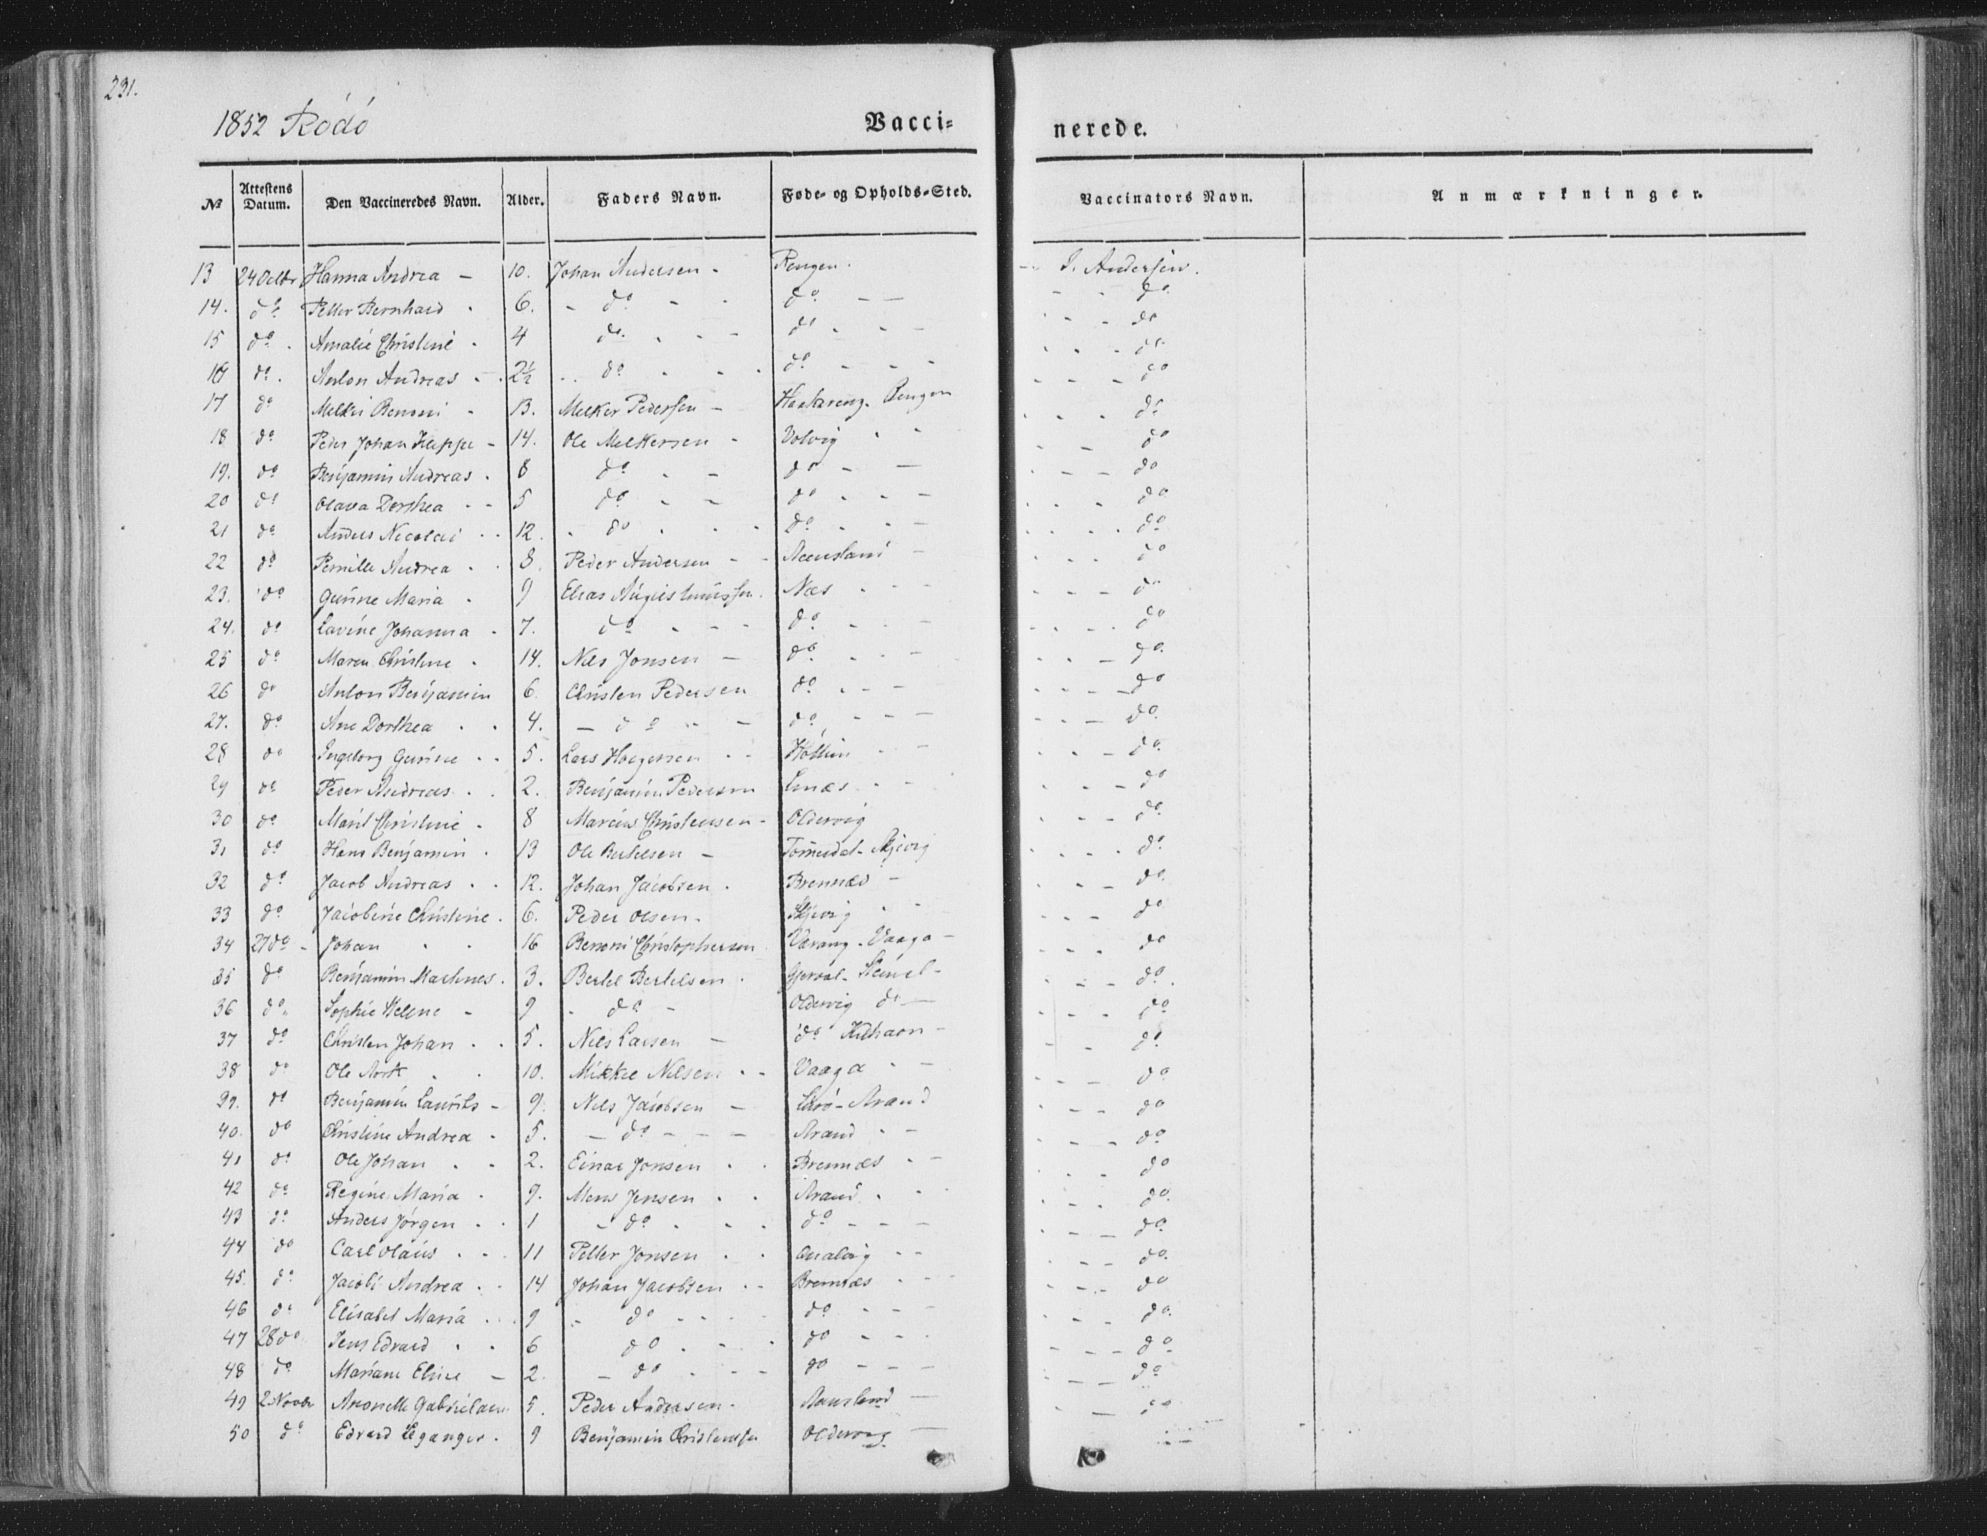 231.
1852 Rödö Vacci= nerede.
№ Attestens Datum. Den Vaccineredes Navn. Alder. Faders Navn. Føde- og Opholds-Sted. Vaccinators Navn. Anmærkninger.
13 24 Octbr Hanna Andrea - 10. Johan Andersen - Rengen. J. Andersen.
14. do Petter Bernhard 6. do do do
15 do Amalie Christine 4 do do do
16 do Anton Andreas 2½ do do do
17 do Melki Benoni 13. Melker Pedersen - Rengen do
18 do Peder Johan Jleppe 14. Ole Melkersen Volvig do
19. do Benjamin Andreas 8 do do do
20 do Olava Dorthea 5 do do do
21 do Anders Nicolai 12. do do do
22 do Pernille Andrea 8. Peder Andersen do
23. do Gurine Maria 9 Elias Augustinussen Næs do
24. do Lavine Johanna 7. do do do
25 do Maren Christine 14. Nils Jonsen do do
26 do Anton Benjamin 6. Christen Pedersen do do
27. do Ane Dorthea 4. do do do
28 do Ingeborg Gurine 5. Lars Holgersen do
29 do Peder Andreas 2. Benjamin Pedersen do
30 do Marit Christine 8 Marcus Christensen Oldervig do
31 do Hans Benjamin 13 Ole Bertelsen - Skjevig do
32 do Jacob Andreas 12. Johan Jacobsen Brennæs do
33 do Jacobine Christine 6. Peder Olsen Skjevig do
34 27 do Johan 16 Benoni Christophersen Varang - Vaaga do
35 do Benjamin Martines 3. Bertel Bertelsen do
36 do Sophie Helene 9 do Oldervig do do
37 do Christen Johan 5. Nils Larsen do do
38 do Ole 10. Mikkel Nilsen Vaaga do
39. do Benjamin Laurits 9. Nils Jacobsen do
40. do Christine Andrea 5. do do
41 do Ole Johan 2. Einar Jonsen Brennæs do
42 do Regine Maria 9. Mons Jensen do
43 do Anders Jørgen 1 do do do
44 do Carl Olaus 11 Petter Jonsen do
45. do Jacobi Andrea 14 Johan Jacobsen Brennæs do
46 do Elisabet Maria 9 do do do
47 28 do Jens Edvard 6 do do do
48 do Mariane Elise 2. do do do
49 2 Novbr Anonette 5. Peder Andersen do
50 do Edvard Eganger 9 Benjamin Christensen Oldervig